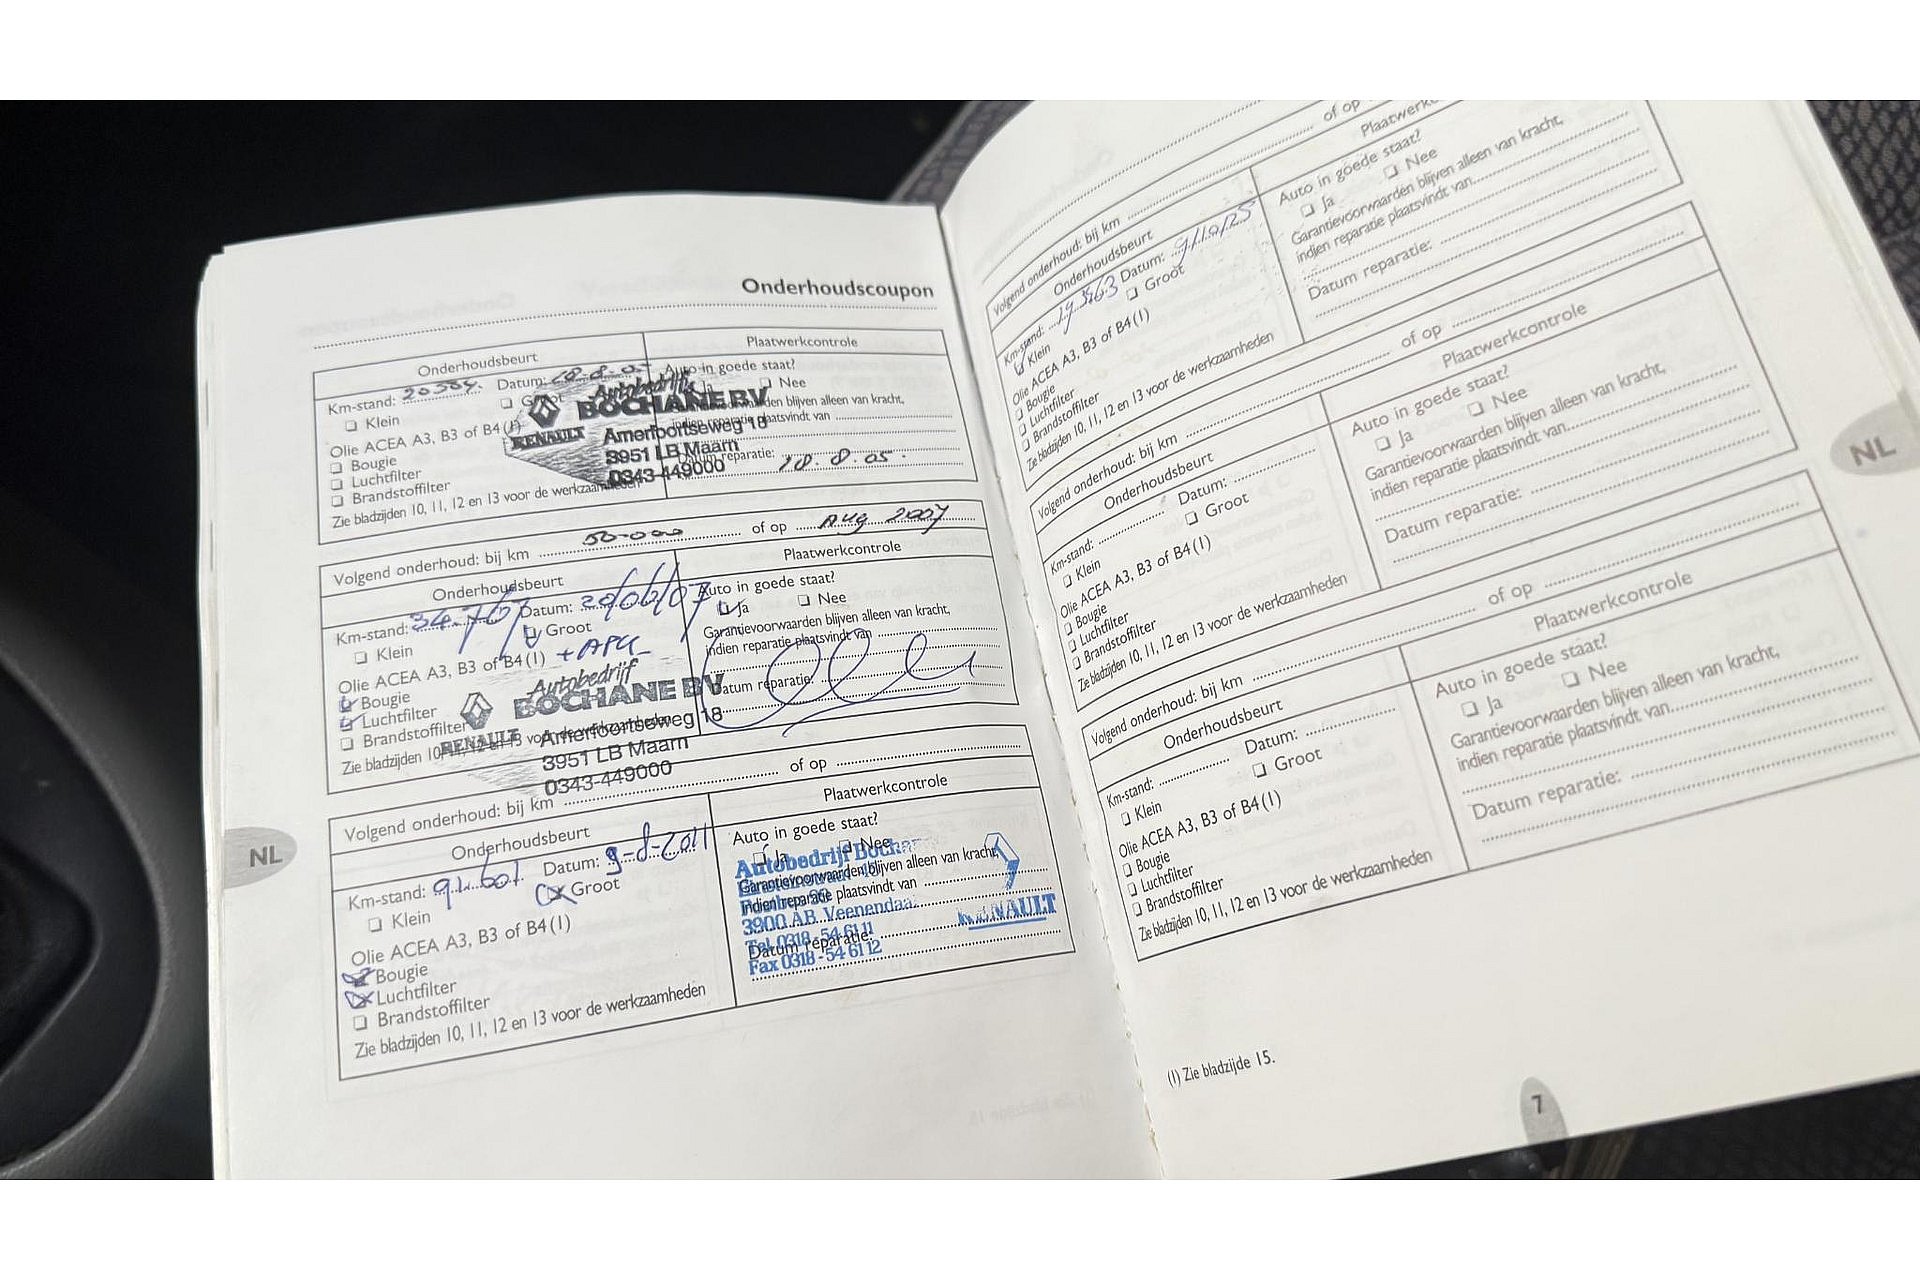 Onderhoudscoupon
Onderhoudsbeurt
Plaatwerkcontrole
Km-stand: 20304. Datum: 18-8-05
Auto in goede staat?
Klein
Groot
Ja Nee
Olie ACEA A3, B3 of B4(1)
Bougie
Luchtfilter
Brandstoffilter
Zie bladzijden 10, 11, 12 en 13 voor de werkzaamheden
Autobedrijf
BOCHANE BV
RENAULT
Amerfoortseweg 18
3951 LB Maarn
0343-449000
alleen van kracht,
indien reparatie plaatsvindt van
Datum reparatie: 18.8.05.
Volgend onderhoud: bij km 50.000 of op Aug 2007
Onderhoudsbeurt
Plaatwerkcontrole
Km-stand: 34.767 Datum: 20/06/07
Auto in goede staat?
Klein
Groot
Ja Nee
Olie ACEA A3, B3 of B4(1) + APK
Bougie
Luchtfilter
Brandstoffilter
Zie bladzijden 10, 11, 12 en 13 voor de werkzaamheden
Garantievoorwaarden blijven alleen van kracht,
indien reparatie plaatsvindt van
Datum reparatie:
Autobedrijf
BOCHANE BV
RENAULT
Amerfoortseweg 18
3951 LB Maarn
0343-449000
Volgend onderhoud: bij km of op
Onderhoudsbeurt
Plaatwerkcontrole
Km-stand: 91.601 Datum: 9-8-2011
Auto in goede staat?
Klein
Groot
Ja Nee
Olie ACEA A3, B3 of B4(1)
Bougie
Luchtfilter
Brandstoffilter
Zie bladzijden 10, 11, 12 en 13 voor de werkzaamheden
Garantievoorwaarden blijven alleen van kracht,
indien reparatie plaatsvindt van
Datum reparatie:
Autobedrijf Bochane
3900 AB Veenendaal
Tel. 0318-54 61 11
Fax 0318-54 61 12
RENAULT
NL
of op
Plaatwerk
Auto in goede staat?
Ja Nee
Garantievoorwaarden blijven alleen van kracht,
indien reparatie plaatsvindt van
Datum reparatie:
Volgend onderhoud: bij km
Onderhoudsbeurt
Km-stand: 193463 Datum: 9/10/25
Klein
Groot
Olie ACEA A3, B3 of B4(1)
Bougie
Luchtfilter
Brandstoffilter
Zie bladzijden 10, 11, 12 en 13 voor de werkzaamheden
Volgend onderhoud: bij km of op
Onderhoudsbeurt
Plaatwerkcontrole
Km-stand: Datum:
Auto in goede staat?
Klein
Groot
Ja Nee
Olie ACEA A3, B3 of B4(1)
Bougie
Luchtfilter
Brandstoffilter
Zie bladzijden 10, 11, 12 en 13 voor de werkzaamheden
Garantievoorwaarden blijven alleen van kracht,
indien reparatie plaatsvindt van
Datum reparatie:
Volgend onderhoud: bij km of op
Onderhoudsbeurt
Plaatwerkcontrole
Km-stand: Datum:
Auto in goede staat?
Klein
Groot
Ja Nee
Olie ACEA A3, B3 of B4(1)
Bougie
Luchtfilter
Brandstoffilter
Zie bladzijden 10, 11, 12 en 13 voor de werkzaamheden
Garantievoorwaarden blijven alleen van kracht,
indien reparatie plaatsvindt van
Datum reparatie:
NL
(1) Zie bladzijde 15.
7